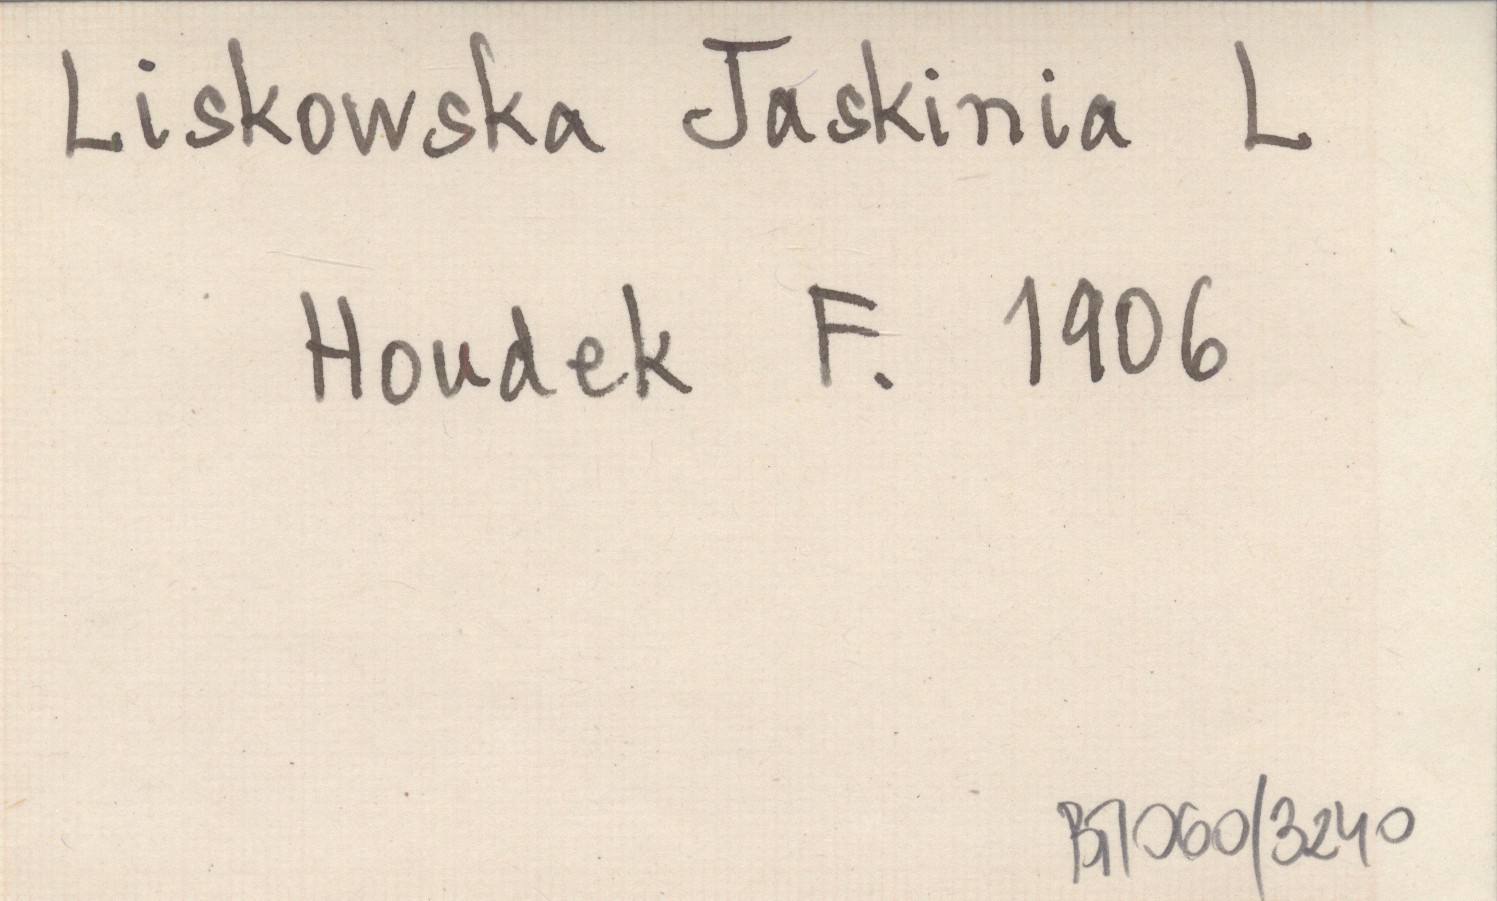 Liskowska Jaskinia L
Houdek F. 1906
/3240